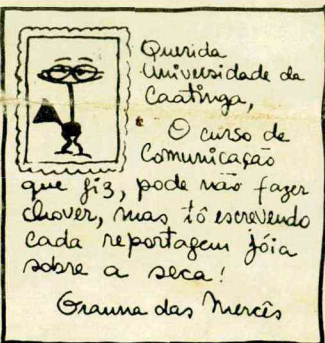 Querida
Universidade da
Caatinga,
O curso de
Comunicação
que fiz, pode não fazer
chover, mas tô escrevendo
cada reportagem jóia
sobre a seca!
Graúna das Mercês